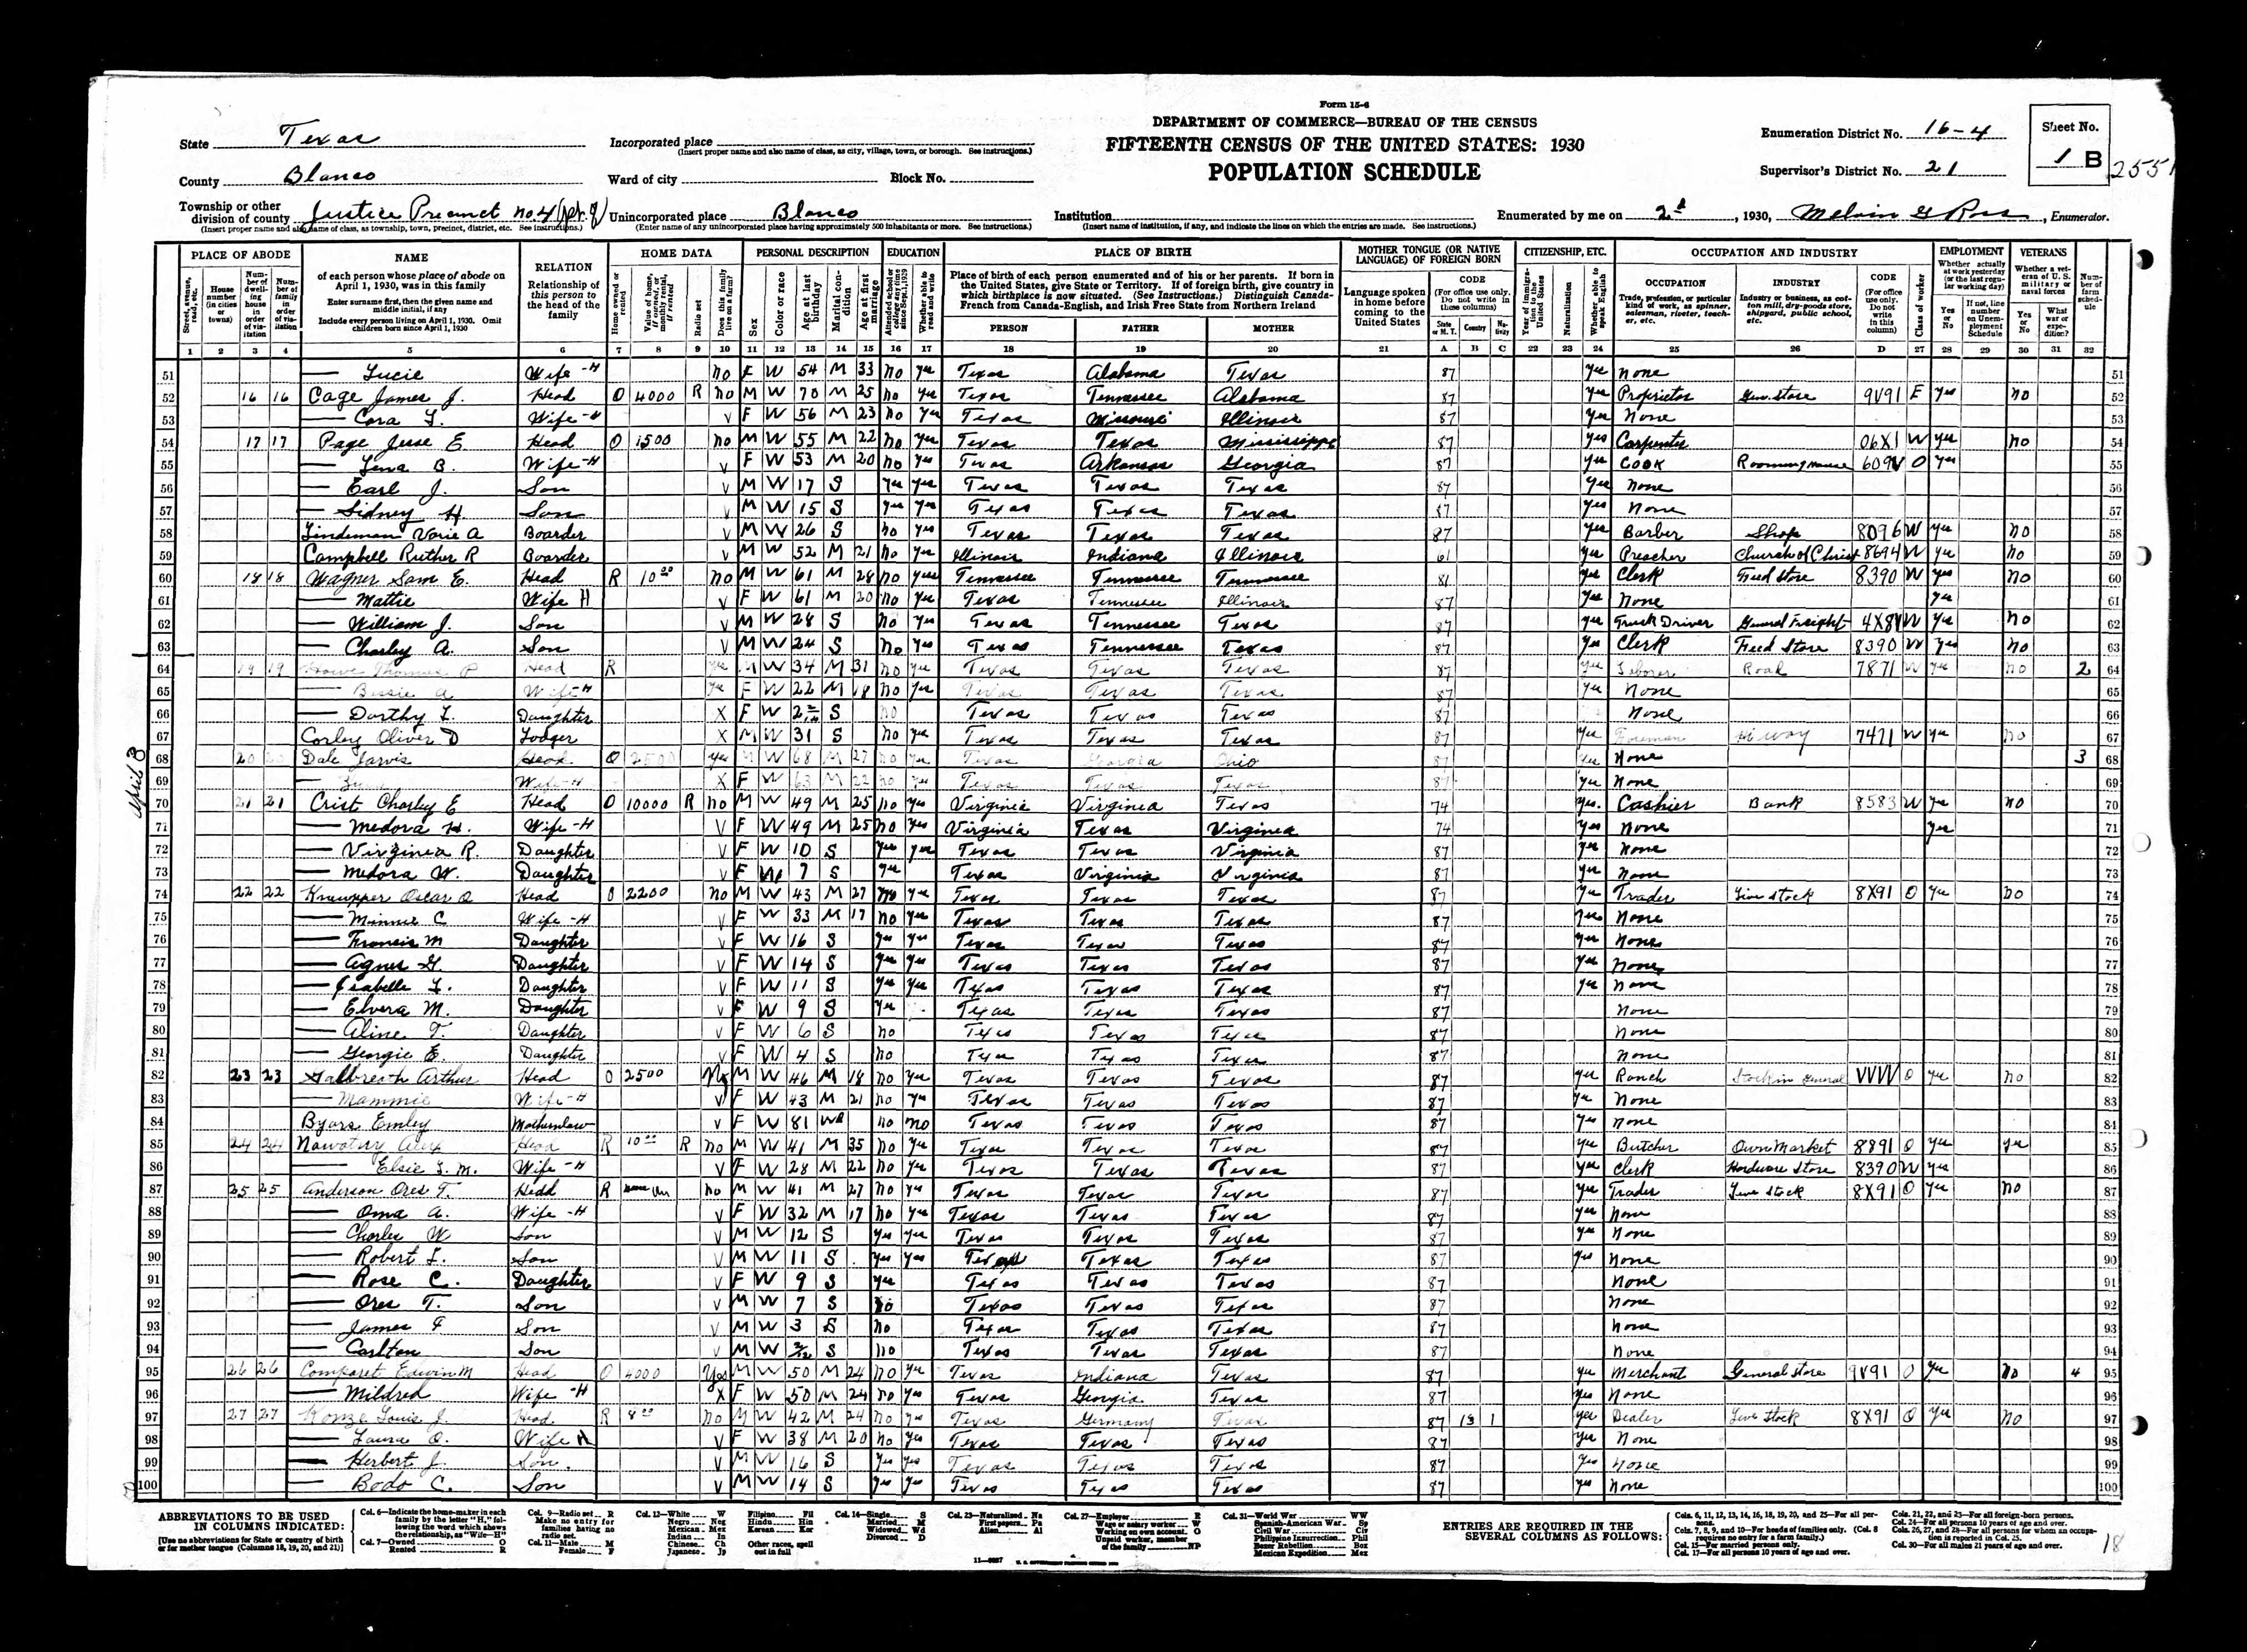 Form 15-6
DEPARTMENT OF COMMERCE—BUREAU OF THE CENSUS
FIFTEENTH CENSUS OF THE UNITED STATES: 1930
POPULATION SCHEDULE
State Texas
County Blanco
Township or other division of county Justice Precinct no 4 (pt. of)
(Insert proper name and also name of class, as township, town, precinct, district, etc. See instructions.)
Incorporated place
(Insert proper name and also name of class, as city, village, town, or borough. See instructions.)
Ward of city Block No.
Unincorporated place Blanco
(Enter name of any unincorporated place having approximately 500 inhabitants or more. See instructions.)
Institution
(Insert name of institution, if any, and indicate the lines on which the entries are made. See instructions.)
Enumeration District No. 16-4
Supervisor's District No. 21
Sheet No.
1 B
2551
Enumerated by me on 2d, 1930, Melvin G Ross, Enumerator.
PLACE OF ABODE NAME RELATION HOME DATA PERSONAL DESCRIPTION EDUCATION PLACE OF BIRTH MOTHER TONGUE (OR NATIVE LANGUAGE) OF FOREIGN BORN CITIZENSHIP, ETC. OCCUPATION AND INDUSTRY EMPLOYMENT VETERANS
PERSON FATHER MOTHER
1 2 3 4 5 6 7 8 9 10 11 12 13 14 15 16 17 18 19 20 21 A B C 22 23 24 25 26 D 27 28 29 30 31 32
51 — Lucie Wife-H no F W 54 M 33 no yes Texas Alabama Texas 87 yes None 51
52 16 16 Cage James J. Head O 4000 R no M W 70 M 25 no yes Texas Tennessee Alabama 87 yes Proprietor Gen. Store 9V91 E yes no 52
53 — Cora L. Wife-H V F W 56 M 23 no yes Texas Missouri Illinois 87 yes None 53
54 17 17 Page Jesse E. Head O 1500 no M W 55 M 22 no yes Texas Texas Mississippi 87 yes Carpenter 06X1 W yes no 54
55 — Lena B. Wife-H V F W 53 M 20 no yes Texas Arkansas Georgia 87 yes Cook Rooming House 609V O yes 55
56 — Earl J. Son V M W 17 S yes yes Texas Texas Texas 87 yes None 56
57 — Sidney H. Son V M W 15 S yes yes Texas Texas Texas 87 yes None 57
58 Lindeman Vorie A Boarder V M W 26 S no yes Texas Texas Texas 87 yes Barber Shop 8096 W yes no 58
59 Campbell Ruther R Boarder V M W 52 M 21 no yes Illinois Indiana Illinois 61 yes Preacher Church of Christ 8694 W yes no 59
60 18 18 Wagner Sam E. Head R 10.00 no M W 61 M 28 no yes Tennessee Tennessee Tennessee 81 yes Clerk Feed Store 8390 W yes no 60
61 — Mattie Wife H V F W 61 M 20 no yes Texas Tennessee Illinois 87 yes None yes 61
62 — William J. Son V M W 28 S no yes Texas Tennessee Texas 87 yes Truck Driver General Freight 4X8V W yes no 62
63 — Charley A. Son V M W 24 S no yes Texas Tennessee Texas 87 yes Clerk Feed Store 8390 W yes no 63
64 19 19 Howe Thomas P Head R yes M W 34 M 31 no yes Texas Texas Texas 87 yes Laborer Road 7871 W yes no 2 64
65 — Bessie A Wife-H yes F W 22 M 18 no yes Texas Texas Texas 87 yes None 65
66 — Dorthy L. Daughter X F W S no Texas Texas Texas 87 None 66
67 Corley Oliver D Lodger X M W 31 S no yes Texas Texas Texas 87 yes Foreman Hiway 7471 W yes no 67
April 3
68 20 20 Dale Jarvis Head O 2500 yes M W 68 M 27 no yes Texas Georgia Ohio 87 yes None 3 68
69 — Wife-H X F W 63 M 22 no yes Texas Texas Texas 87 yes None 69
70 21 21 Crist Charley E Head O 10000 R no M W 49 M 25 no yes Virginia Virginia Texas 74 yes. Cashier Bank 8583 W yes no 70
71 — Medora H. Wife-H V F W 49 M 25 no yes Virginia Texas Virginia 74 yes None yes 71
72 — Virginia R. Daughter V F W 10 S yes yes Texas Texas Virginia 87 yes None 72
73 — Medora W. Daughter V F W 7 S yes Texas Virginia Virginia 87 yes None 73
74 22 22 Kneupper Oscar O Head O 2200 no M W 43 M 27 no yes Texas Texas Texas 87 yes Trader Live stock 8X91 O yes no 74
75 — Minnie C Wife-H V F W 33 M 17 no yes Texas Texas Texas 87 yes None 75
76 — Francis M Daughter V F W 16 S yes yes Texas Texas Texas 87 yes None 76
77 — Agnes G. Daughter V F W 14 S yes yes Texas Texas Texas 87 yes None 77
78 — Isabelle L. Daughter V F W 11 S yes yes Texas Texas Texas 87 yes None 78
79 — Elvera M. Daughter V F W 9 S yes Texas Texas Texas 87 None 79
80 — Aline T. Daughter V F W 6 S no Texas Texas Texas 87 None 80
81 — Georgie E. Daughter V F W 4 S no Texas Texas Texas 87 None 81
82 23 23 Galbreath Arthur Head O 2500 No M W 46 M 18 no yes Texas Texas Texas 87 yes Ranch Stock in General VVVV O yes no 82
83 — Mammie Wife-H V F W 43 M 21 no yes Texas Texas Texas 87 yes None 83
84 Byars Emley Motherinlaw V F W 81 Wd no no Texas Texas Texas 87 yes None 84
85 24 24 Nowotny Alex Head R 10.00 R no M W 41 M 35 no yes Texas Texas Texas 87 yes Butcher Own Market 8891 O yes yes 85
86 — Elsie L. M. Wife-H V F W 28 M 22 no yes Texas Texas Texas 87 yes Clerk Hardware Store 8390 W yes 86
87 25 25 Anderson Ores T. Head R no M W 41 M 27 no yes Texas Texas Texas 87 yes Trader Live stock 8X91 O yes no 87
88 — Oma A. Wife-H V F W 32 M 17 no yes Texas Texas Texas 87 yes None 88
89 — Charles W Son V M W 12 S yes yes Texas Texas Texas 87 yes None 89
90 — Robert L. Son V M W 11 S yes yes Texas Texas Texas 87 yes None 90
91 — Rose C. Daughter V F W 9 S yes Texas Texas Texas 87 None 91
92 — Ores T. Son V M W 7 S no Texas Texas Texas 87 None 92
93 — James F Son V M W 3 S no Texas Texas Texas 87 None 93
94 — Carlton Son V M W S no Texas Texas Texas 87 None 94
95 26 26 Comparet Edwin M Head O 4000 Yes M W 50 M 24 no yes Texas Indiana Texas 87 yes Merchant General Store 9V91 O yes no 4 95
96 — Mildred Wife-H X F W 50 M 24 no yes Texas Georgia Texas 87 yes None 96
97 27 27 Konze Louis J. Head R 8.00 no M W 42 M 24 no yes Texas Germany Texas 87 13 1 yes Dealer Live Stock 8X91 O yes no 97
98 — Laura O. Wife H V F W 38 M 20 no yes Texas Texas Texas 87 yes None 98
99 — Herbert J. Son. V M W 16 S yes yes Texas Texas Texas 87 yes None 99
100 — Bodo C. Son V M W 14 S yes yes Texas Texas Texas 87 yes None 100
ABBREVIATIONS TO BE USED IN COLUMNS INDICATED:
[Use no abbreviations for State or country of birth or for mother tongue (Columns 18, 19, 20, and 21)]
ENTRIES ARE REQUIRED IN THE SEVERAL COLUMNS AS FOLLOWS:
18